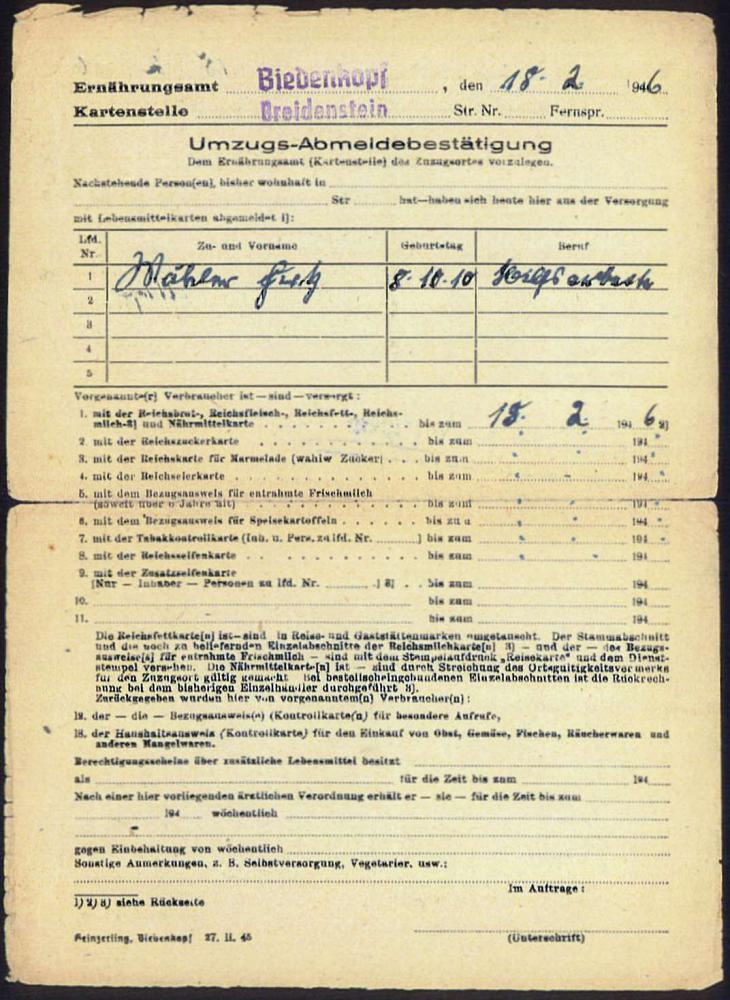 Ernährungsamt Biedenkopf, den 18. 2. 1946
Kartenstelle Breidenstein Str. Nr. Fernspr.
Umzugs-Abmeldebestätigung
Dem Ernährungsamt (Kartenstelle) des Zuzugsortes vorzulegen.
Nachstehende Person(en), bisher wohnhaft in
Str hat—haben sich heute hier aus der Versorgung
mit Lebensmittelkarten abgemeldet 1):
Lfd. Nr. Zu- und Vorname Geburtstag Beruf
1 8.10.10 Hilfsarbeiter
2
3
4
5
Vorgenannte(r) Verbraucher ist — sind — versorgt:
1. mit der Reichsbrot-, Reichsfleisch-, Reichsfett-, Reichs-
milch-2) und Nährmittelkarte bis zum 18. 2. 194 6 2)
2. mit der Reichszuckerkarte bis zum 194
3. mit der Reichskarte für Marmelade (wahlw Zucker) bis zum 194
4. mit der Reichseierkarte bis zum 194
5. mit dem Bezugsausweis für entrahmte Frischmilch
(soweit über 6 Jahre alt) bis zum 194
6. mit dem Bezugsausweis für Speisekartoffeln bis zum 194
7. mit der Tabakkontrollkarte (Inh. u. Pers. zu lfd. Nr. ) bis zum 194
8. mit der Reichsseifenkarte bis zum 194
9. mit der Zusatzseifenkarte
[Nur — Inhaber — Personen zu lfd. Nr. ] 3] bis zum 194
10. bis zum 194
11. bis zum 194
Die Reichsfettkarte[n] ist—sind in Reise- und Gaststättenmarken umgetauscht. Der Stammabschnitt
und die noch zu beliefernden Einzelabschnitte der Reichsmilchkarte[n] 3) — und der — des Bezugs-
ausweise[s] für entrahmte Frischmilch — sind mit dem Stempelaufdruck „Reisekarte" und dem Dienst-
stempel versehen. Die Nährmittelkarte[n] ist — sind durch Streichung des Ortsgültigkeitsvermerks
für den Zuzugsort gültig gemacht. Bei bestellscheingebundenen Einzelabschnitten ist die Rückrech-
nung bei dem bisherigen Einzelhändler durchgeführt 3).
Zurückgegeben wurden hier von vorgenanntem(n) Verbraucher(n):
12. der — die — Bezugsausweis(e) (Kontrollkarte(n) für besondere Aufrufe,
13. der Haushaltsausweis (Kontrollkarte) für den Einkauf von Obst, Gemüse, Fischen, Räucherwaren und
anderen Mangelwaren.
Berechtigungsscheine über zusätzliche Lebensmittel besitzt
als für die Zeit bis zum 194
Nach einer hier vorliegenden ärztlichen Verordnung erhält er — sie — für die Zeit bis zum
194 wöchentlich
gegen Einbehaltung von wöchentlich
Sonstige Anmerkungen, z. B. Selbstversorgung, Vegetarier, usw.:
Im Auftrage:
1) 2) 3) siehe Rückseite
Heinzerling, Biedenkopf 27. 11. 45 (Unterschrift)